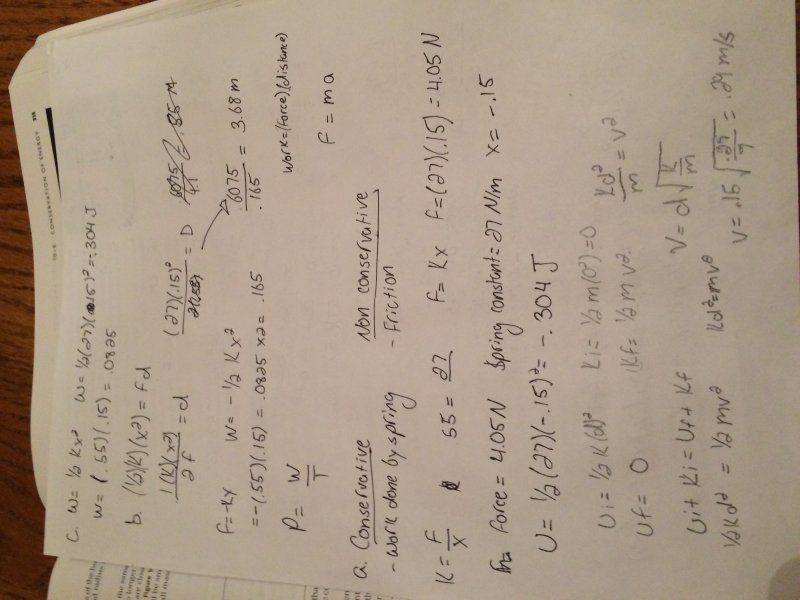 10-6 CONSERVATION OF ENERGY
C. W = 1/2 Kx² W = 1/2(27)(.15)² = .304 J
W = (.55)(.15) = .0825
b. (1/2)(K)(x²) = Fd
1(K)(x²)/2F = d (27)(.15)²/2(.55) = D
.6075/.165 = 3.68 m
F = -Kx W = -1/2 Kx²
= -(.55)(.15) = .0825 x2 = .165
P = W/T
work=(Force)(distance)
F = ma
a. Conservative Non conservative
- Work done by spring - Friction
K = F/x 55 = 27 F = Kx F = (27)(.15) = 4.05 N
Force = 4.05 N Spring constant = 27 N/m x = -.15
U = 1/2 (27)(-.15)² = -.304 J
Ui = 1/2 K(d)² Ki = 1/2 m(0²) = 0
Uf = 0 Kf = 1/2 mv² Kd²/m = v²
Ui + Ki = Uf + Kf
1/2 Kd² = 1/2 mv² Kd² = mv²
V = d√K/m
V = .15
= .29 m/s